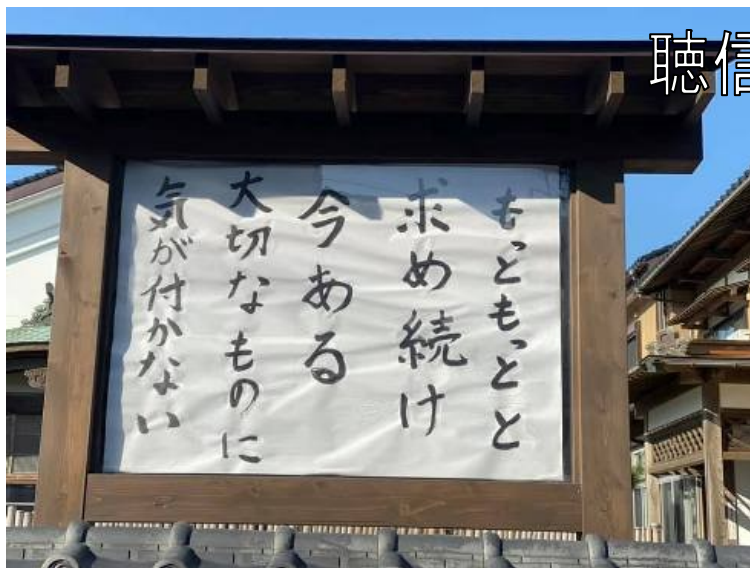 もっともっとと
求め続け
今ある
大切なものに
気が付かない
聴信